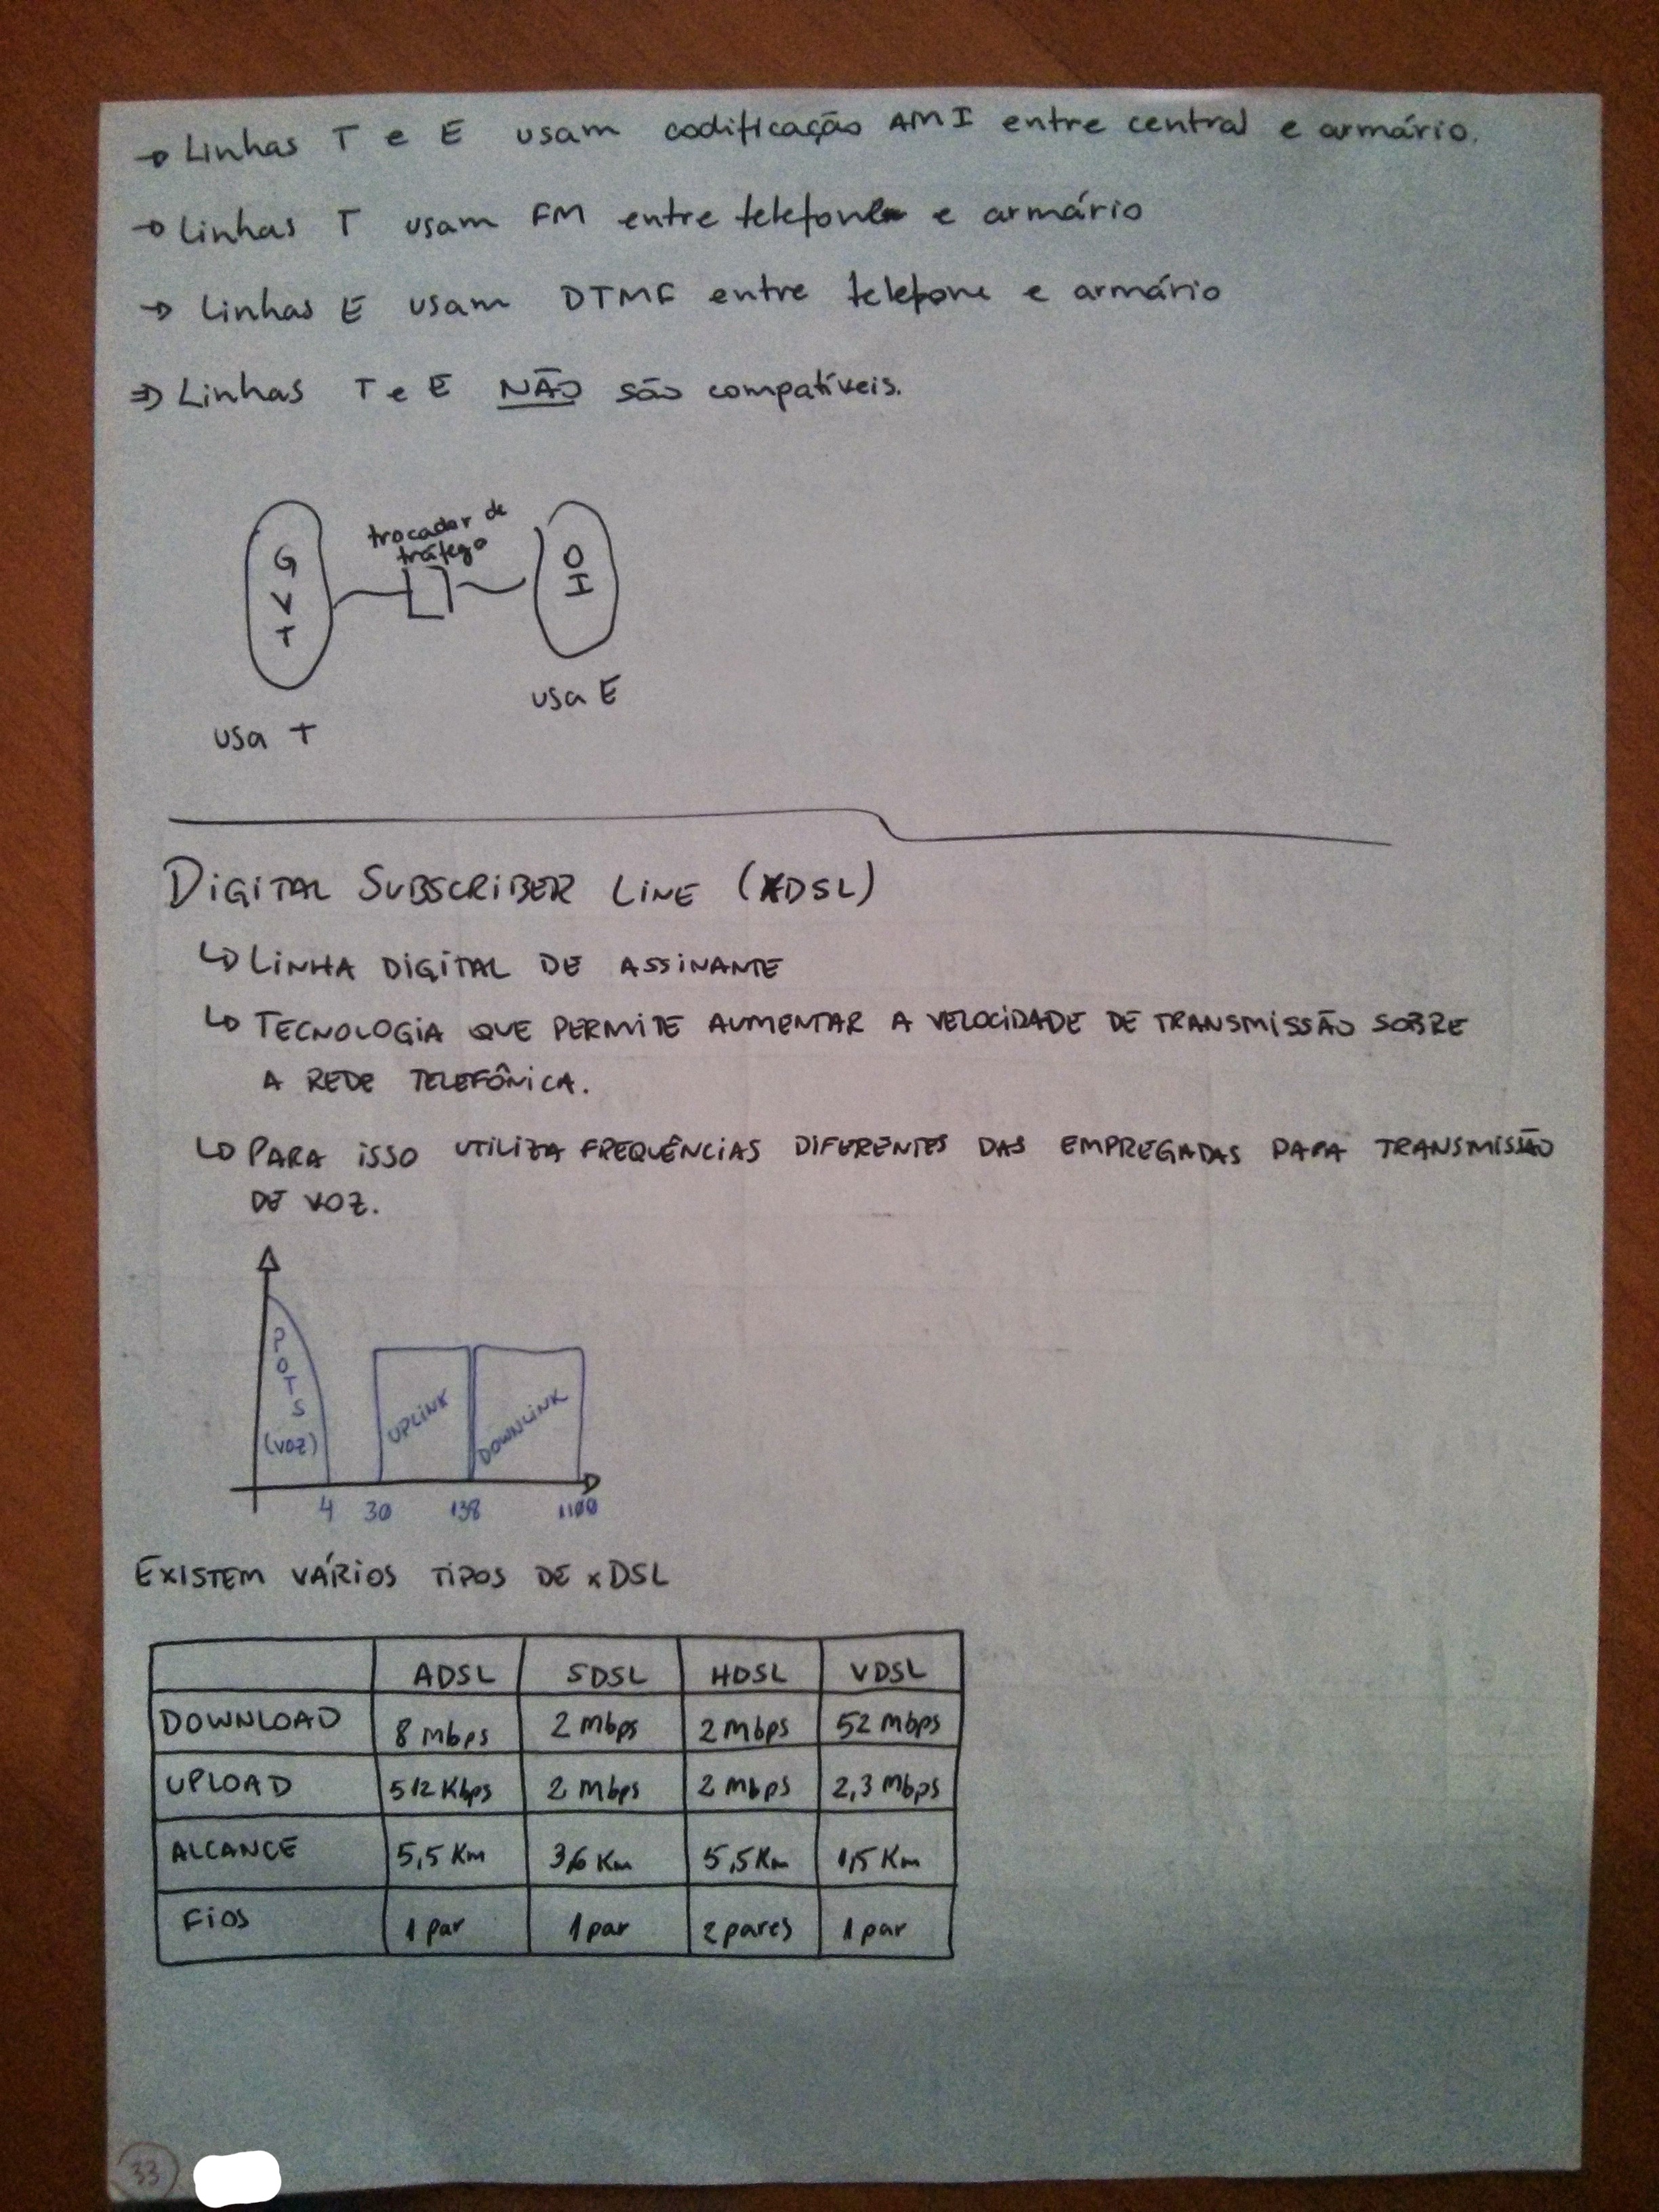 → Linhas T e E usam codificação AMI entre central e armário.
→ Linhas T usam FM entre telefone e armário
→ Linhas E usam DTMF entre telefone e armário
⇒ Linhas T e E NÃO são compatíveis.
GVT
trocador de
tráfego
OI
usa E
usa T
DIGITAL SUBSCRIBER LINE (xDSL)
↳ LINHA DIGITAL DE ASSINANTE
↳ TECNOLOGIA QUE PERMITE AUMENTAR A VELOCIDADE DE TRANSMISSÃO SOBRE
A REDE TELEFÔNICA.
↳ PARA ISSO UTILIZA FREQUÊNCIAS DIFERENTES DAS EMPREGADAS PARA TRANSMISSÃO
DE VOZ.
POTS
(VOZ)
UPLINK
DOWNLINK
4 30 138 1100
EXISTEM VÁRIOS TIPOS DE xDSL
ADSL SDSL HDSL VDSL
DOWNLOAD 8 Mbps 2 Mbps 2 Mbps 52 Mbps
UPLOAD 512 Kbps 2 Mbps 2 Mbps 2,3 Mbps
ALCANCE 5,5 Km 3,6 Km 5,5 Km 1,5 Km
FIOS 1 par 1 par 2 pares 1 par
33